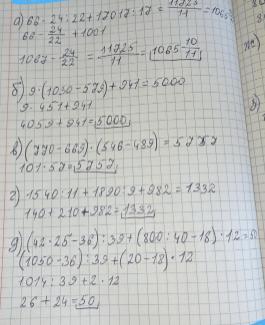 а) 66 - 24 : 22 + 17017 : 17 = 11725/11 = 1065
66 - 24/22 + 1001
1067 - 24/22 = 11725/11 = 1065 10/11
б) 9 · (1030 - 579) + 941 = 5000
9 · 451 + 941
4059 + 941 = 5000
в) (770 - 669) · (546 - 489) = 5757
101 · 57 = 5757
г) 1540 : 11 + 1890 : 9 + 982 = 1332
140 + 210 + 982 = 1332
д) (42 · 25 - 36) : 39 + (800 : 40 - 18) · 12 = 50
(1050 - 36) : 39 + (20 - 18) · 12
1014 : 39 + 2 · 12
26 + 24 = 50